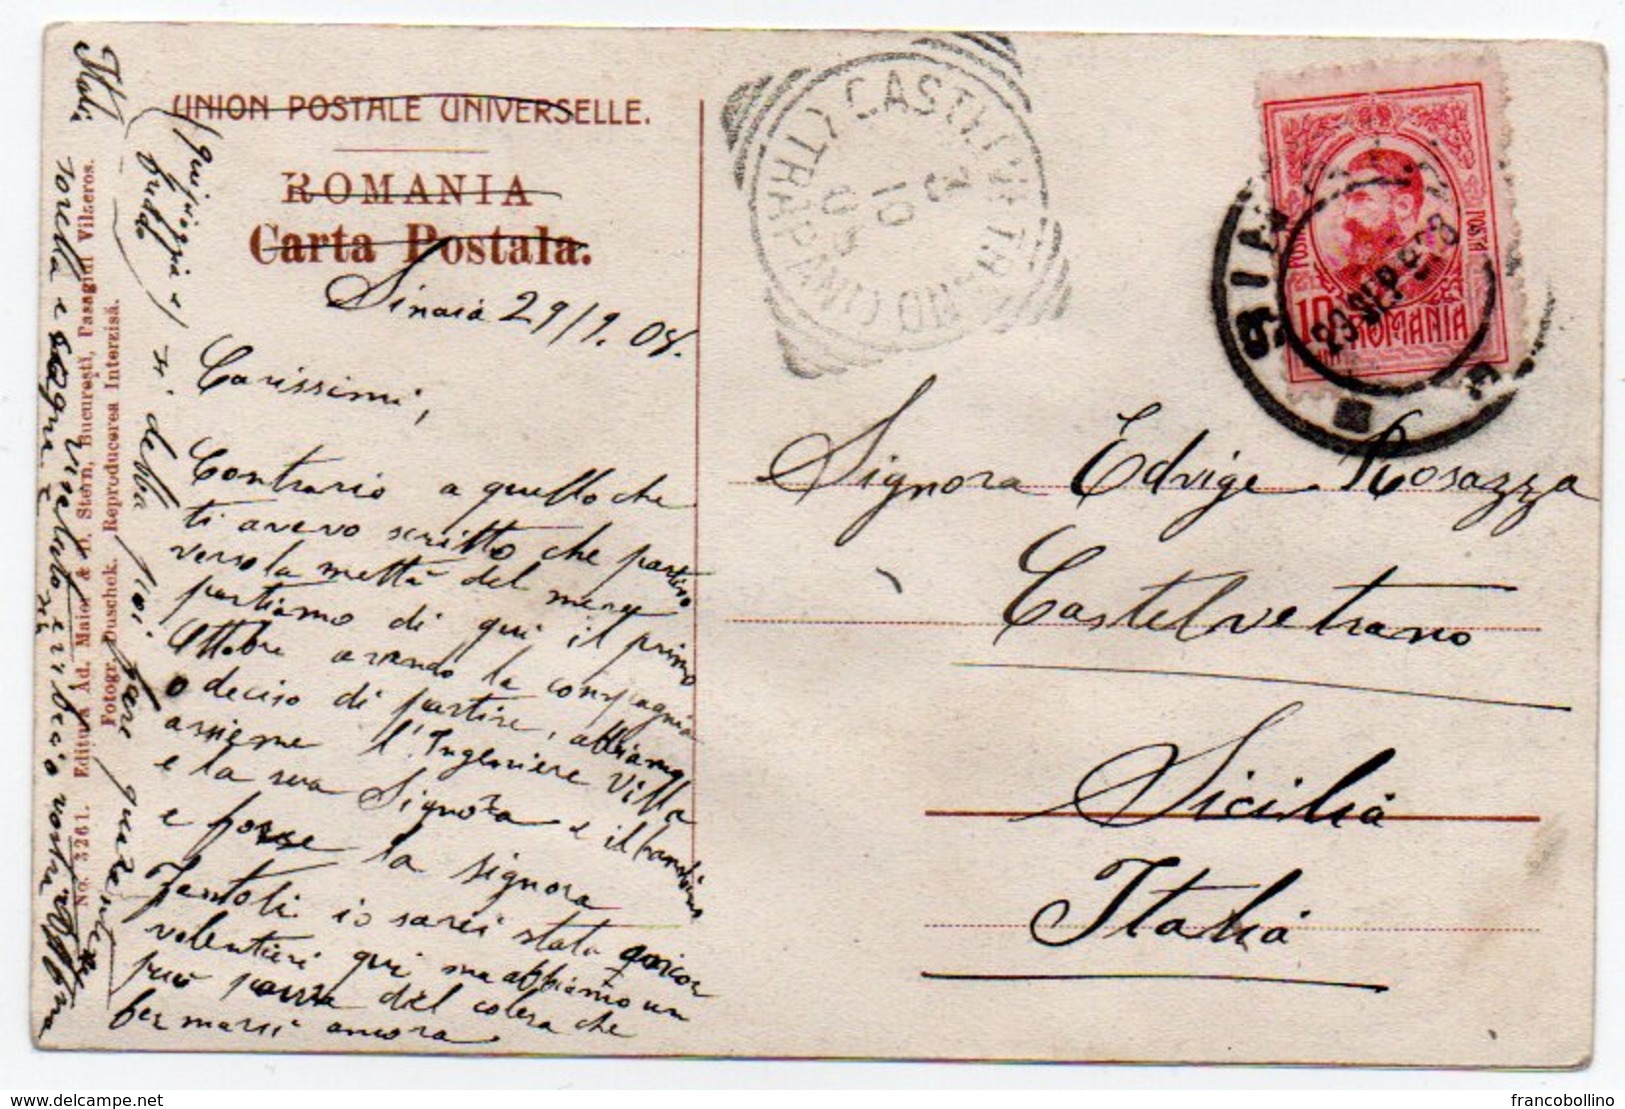 UNION POSTALE UNIVERSELLE.
ROMANIA
Carta Postala.
Sinaia 29/9.08.
Carissimi,
Contrario a quello che
ti avevo scritto che partivo
verso la mettà del mese
partiamo di qui il primo
Ottobre avendo la compagnia
deciso di partire, abbiamo
assieme l'Ingeniere Villa
e la sua Signora e il bambino
e forse la signora
Zentoli io sarei stata ancor
volentieri qui ma abbiamo un
può paura del colera che
fermarsi ancora
(qui pioggia e
freddo)
si debba poi fare quarantene
Itali
sorella e
No. 3261. Editura Ad. Maier & D. Stern, Bucuresti, Pasagiul Vilacros.
Fotogr. Duschek. Reproducerea Interzisă.
CASTELVETRANO (TRAPANI)
3
10
08
SINAIA
29 SEP 908
POSTA
POSTA
10
ROMANIA
Signora Edvige Rosazza
Castelvetrano
Sicilia
Italia
francobollino